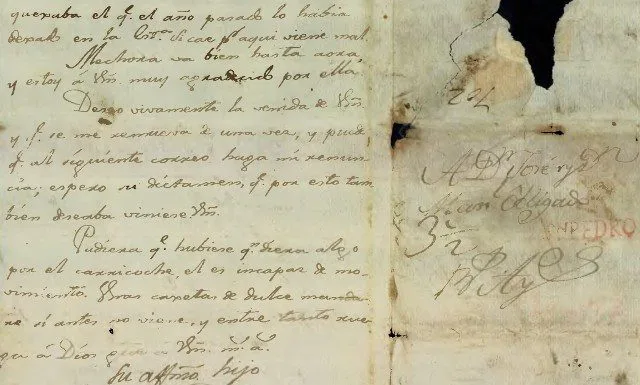 quexaba el q.e el año pasado lo habia
dexals en la
aqui viene mal
Mechora va bien hasta aora,
y estoy á Vm. muy agradecido por ella.
Deseo vivamente la venida de Vm.
y q.e se me remueva de una vez, y puede
q.e al siguiente correo haga mi renun-
cia; espero su dictamen, q.e por esto tam
bien deseaba viniese Vm.
Pudiera q.e hubiese q.n diera algo
por el carricoche, el es incapaz de mo-
vimiento. Unas caxetas de dulce manda-
re si antes no viene, y entre tanto rue-
ga á Dios Vm. m.s a.s
Su affmo. hijo
A D.n José
Obligado
3½
PEDRO